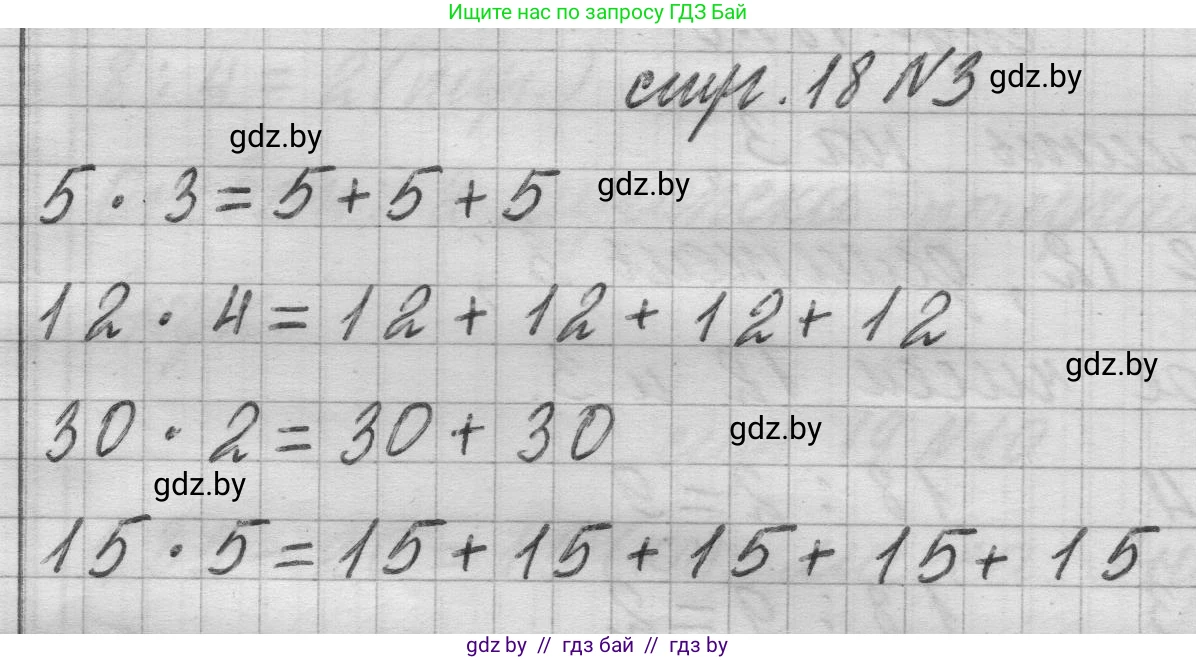 Ищите нас по запросу ГДЗ Бай
стр. 18 N3 gdz.by
gdz.by
5 · 3 = 5 + 5 + 5 gdz.by
12 · 4 = 12 + 12 + 12 + 12
gdz.by
30 · 2 = 30 + 30 gdz.by
gdz.by
15 · 5 = 15 + 15 + 15 + 15 + 15
gdz.by // гдз бай // гдз by